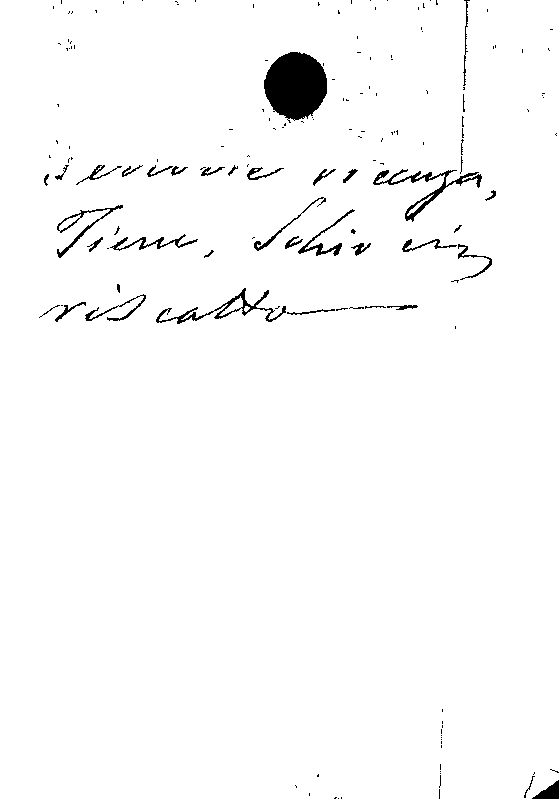 Ferrovie vicenza,
Tiene, Schio in
riscatto